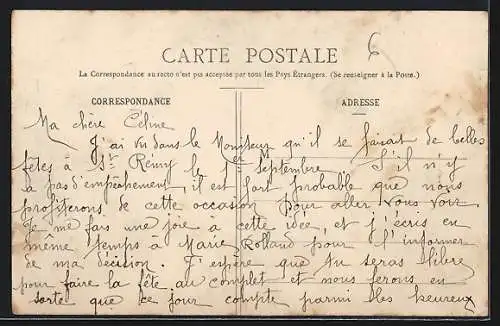 6
CARTE POSTALE
La Correspondance au recto n'est pas acceptée par tous les Pays Étrangers. (Se renseigner à la Poste.)
CORRESPONDANCE
ADRESSE
Ma chère Céline
J'ai vu dans le Moniteur qu'il se faisait de belles
fêtes à St Rémy le 1er Septembre S'il n'y
a pas d'empêchement, il est fort probable que nous
profiterons de cette occasion pour aller vous voir.
Je me fais une joie à cette idée, et j'écris en
même temps à Marie Rolland pour l'informer
de ma décision J'espère que tu seras libre
pour faire la fête au complet et nous ferons en
sorte que ce jour compte parmi les heureux